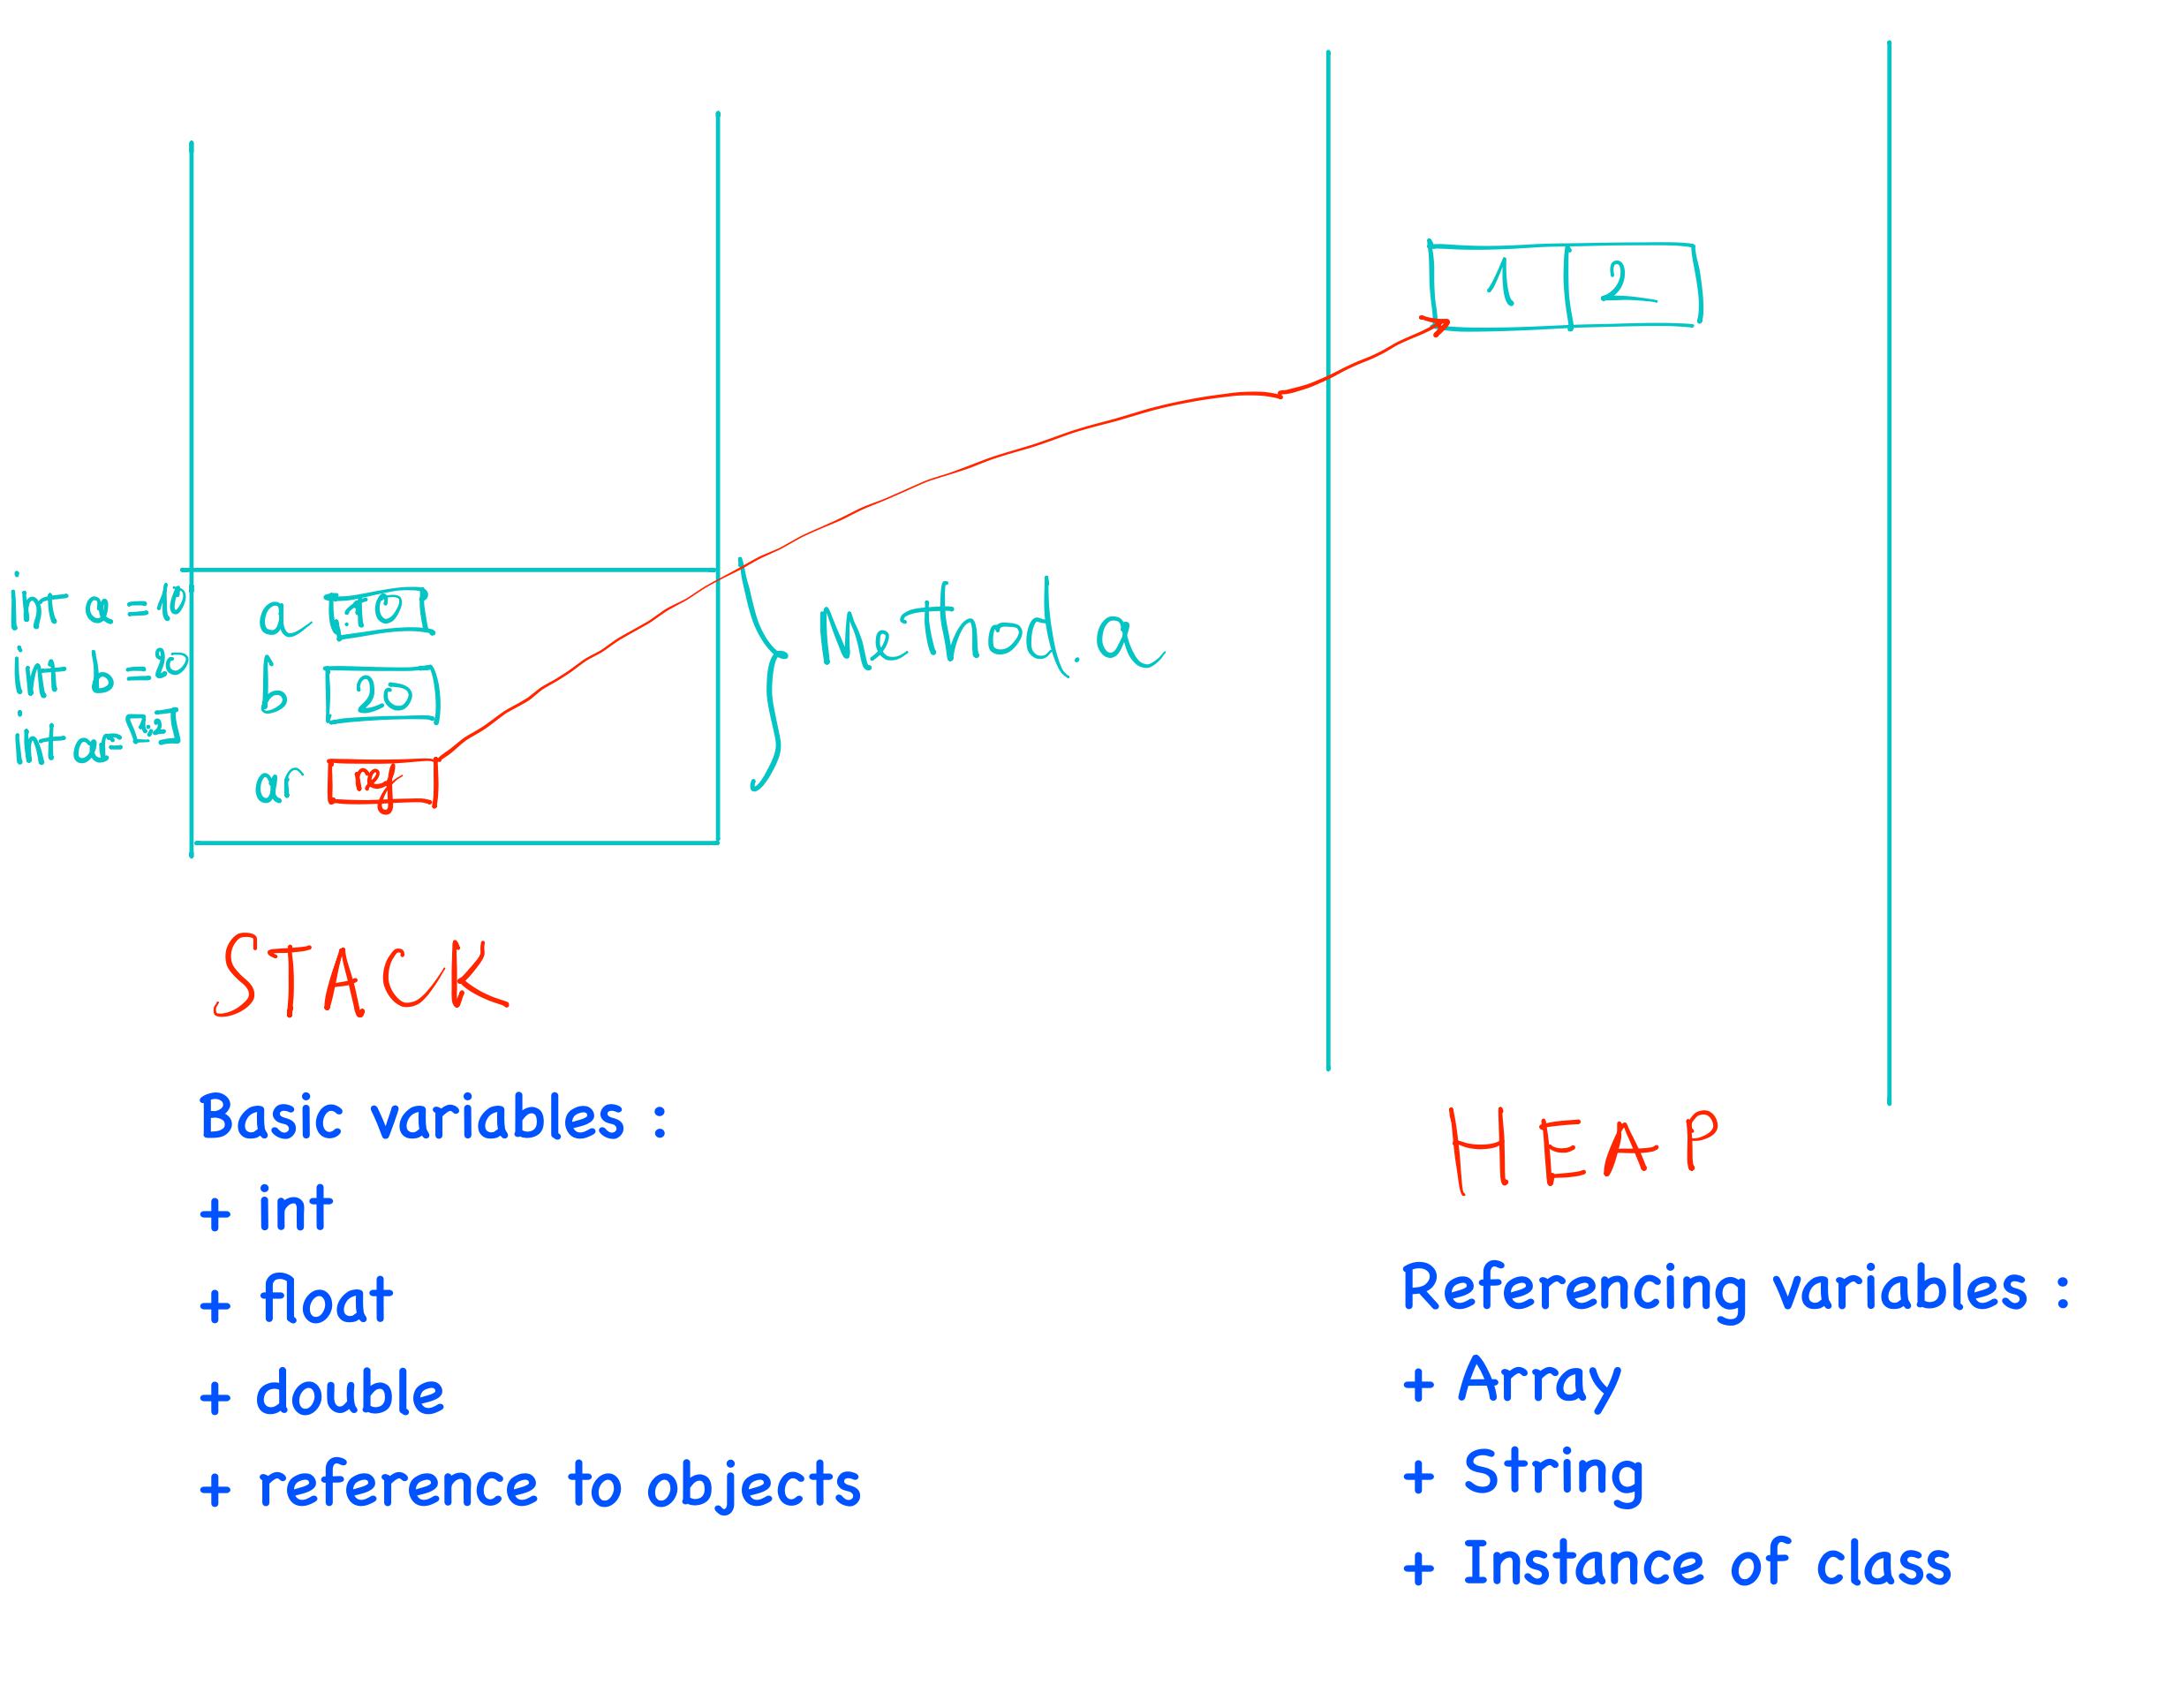 1 2
int a = 10
a 10
Method.a
int b = 20
b 20
int ar = [1,2]
ar ref
STACK
Basic variables :
+ int
+ float
+ double
+ reference to objects
HEAP
Referencing variables :
+ Array
+ String
+ Instance of class